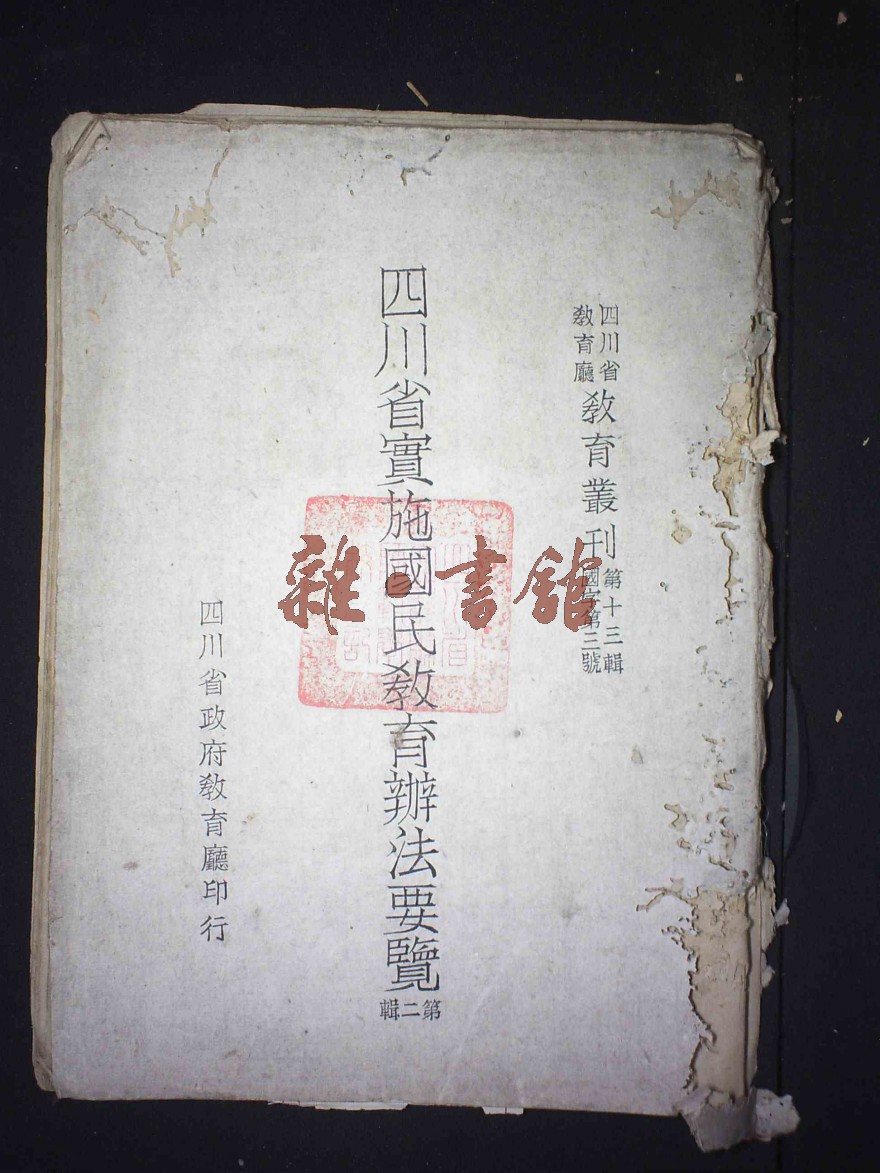 四川省教育廳教育叢刊第十三輯國字第三號
四川省實施國民教育辦法要覽第二輯
四川省政府教育廳印行
雜·書舘